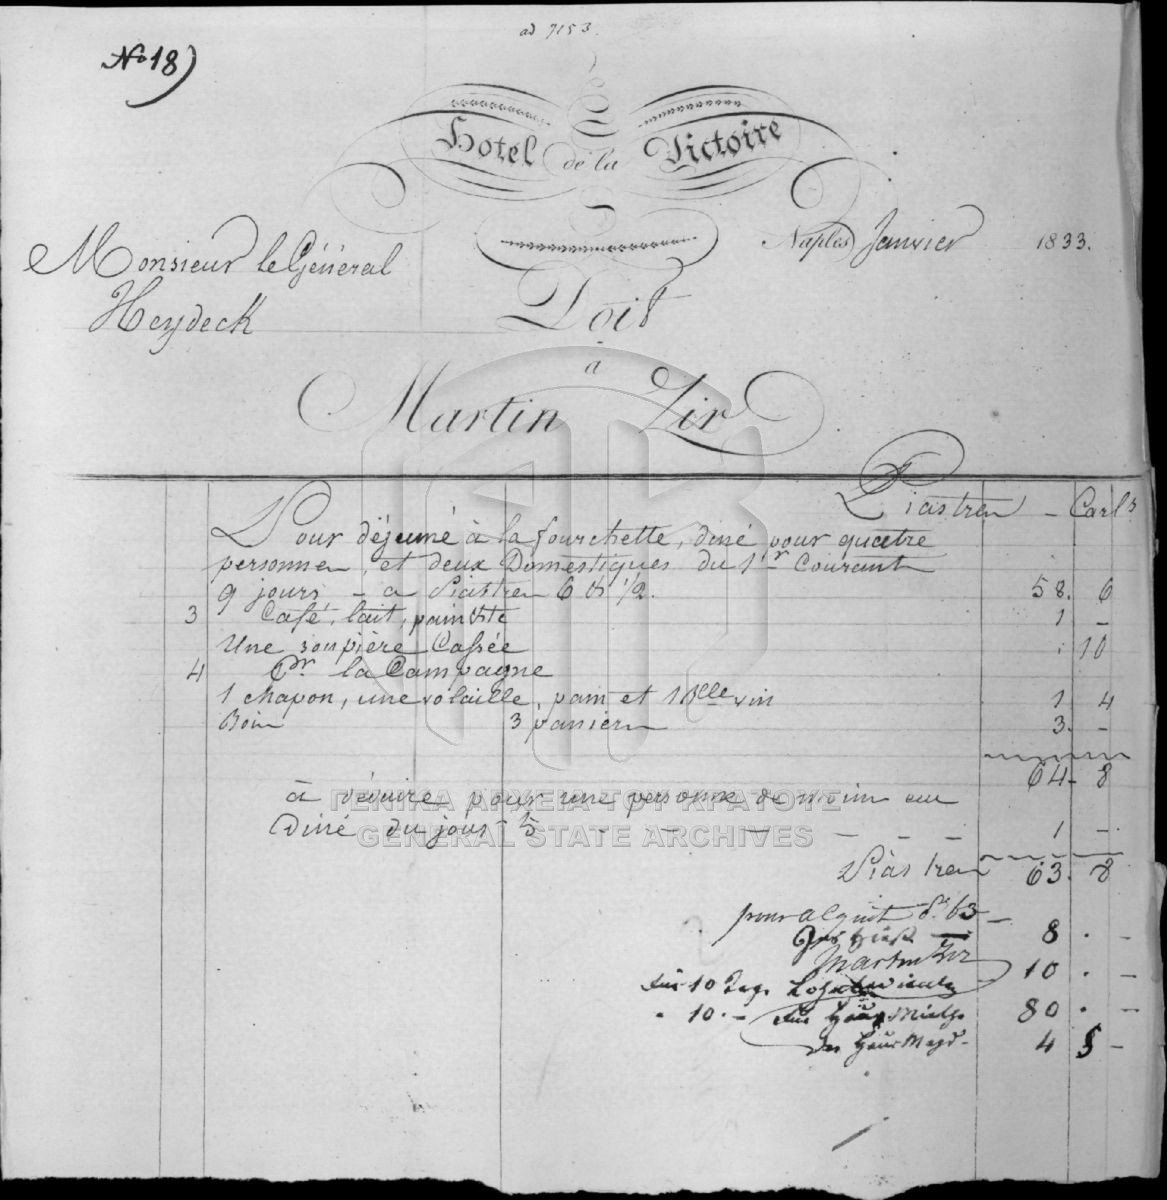 ad 7153.
No 18)
Hotel de la Victoire
Naples Janvier 1833.
Monsieur le Général
Heydeck
Doit
a
Martin Zir
Piastren - Carls
Pour déjeuné à la fourchette, diné pour quatre
personnen, et deux Domestiques du 1r Courant
9 jours - a Piastren 6 1/2. 58. 6
3 Café, lait, pain 1 -
Une soupière Cassée 10
4 Pr la Campagne
1 chapon, une volaille, pain et 1 Blle vin 1 4
Bois 3 paniers 3. -
64 - 8
à déduire pour une personne de moins au
Diné du jour - - - - - - 1 -
Piastren 63. 8
pour acquit Pr 63 -
8 . -
Martin Zir
für 10 Tage 10 . -
" 10. - für 80 . -
der Haus Magd - 4 §  -
ΓΕΝΙΚΑ ΑΡΧΕΙΑ ΤΟΥ ΚΡΑΤΟΥΣ
GENERAL STATE ARCHIVES